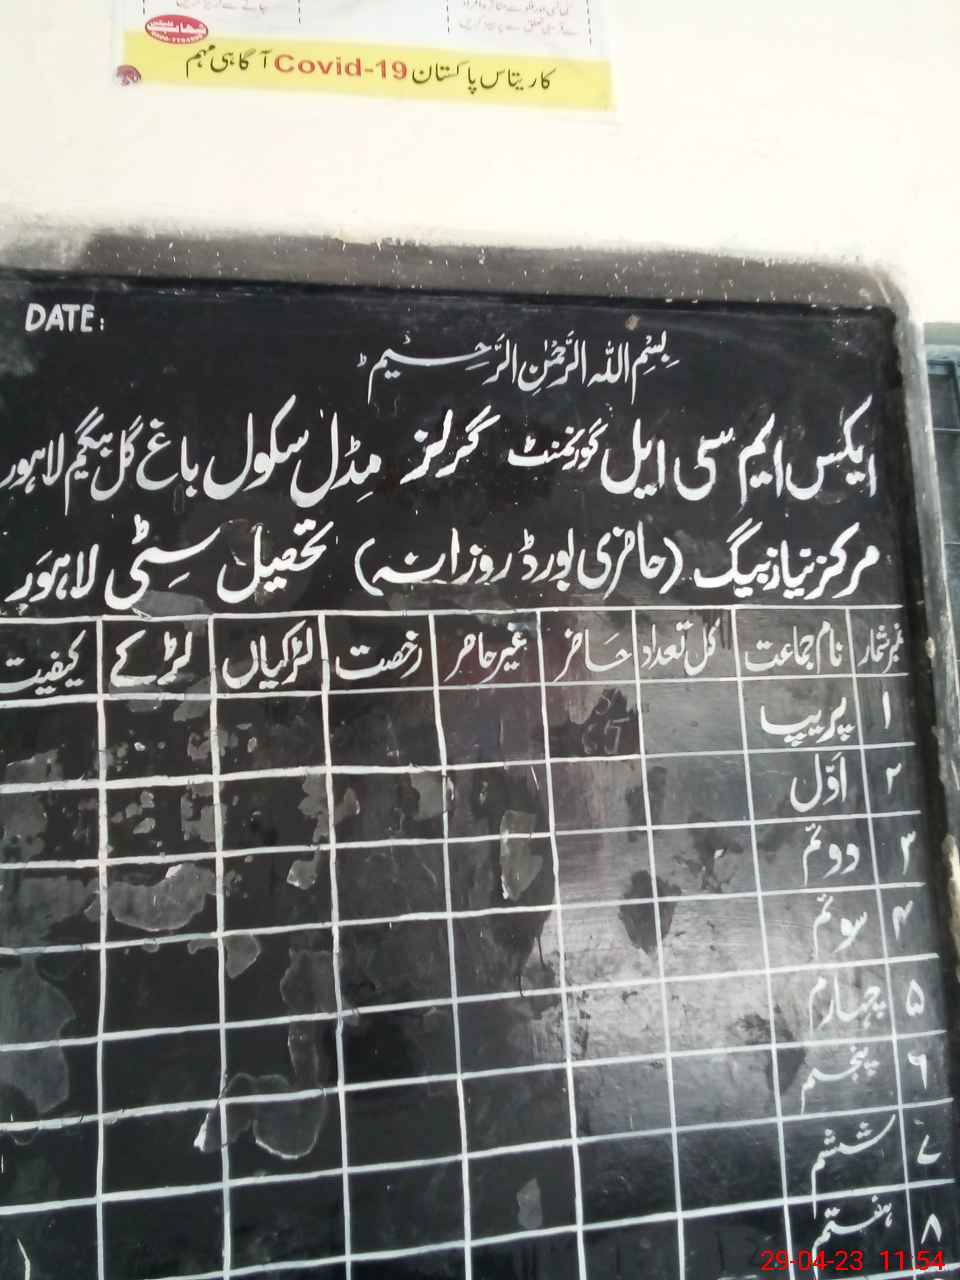 کاریتاس پاکستان Covid-19 آگاہی مہم
DATE:
بِسْمِ اللہ الرَّحْمٰنِ الرَّحِیْم
ایکس ایم سی ایل گورنمنٹ گرلز مڈل سکول باغ گل بیگم لاہور
مرکز نیاز بیگ (حاضری بورڈ روزانہ) تحصیل سِٹی لاہور
نمبر شمار نام جماعت کل تعداد حاضر غیر حاضر رخصت لڑکیاں لڑکے کیفیت
۱ پریپ
۲ اوّل
۳ دوئم
۴ سوئم
۵ چہارم
۶ پنجم
۷ ششم
۸ ہفتم
29-04-23 11:54